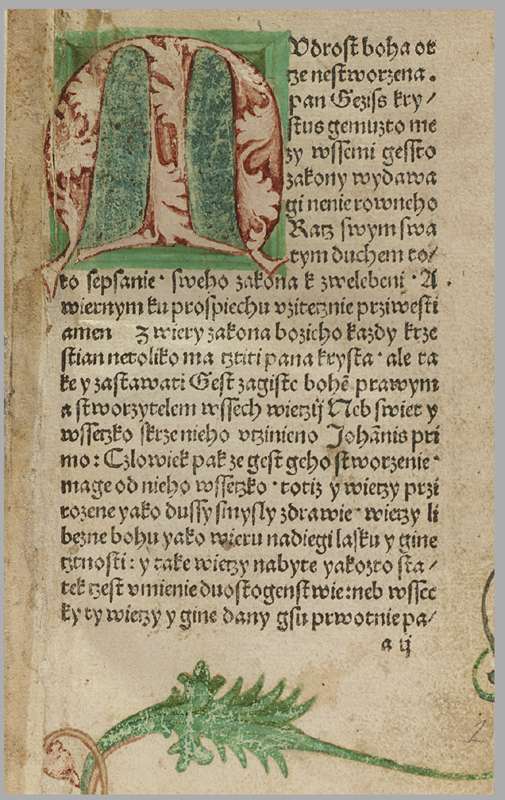 MVdrost boha ot
cze nestworzena.
pan Geziss kry/
stus gemuzto me
zy wssemi gessto
zakony wydawa
gi nenie rowneho
Racz swym swa
tym duchem to/
to sepsanie · sweho zakona k zwelebeni · A
wiernym ku prospiechu vzitecznie prziwesti
amen Z wiery zakona bozieho kazdy krze
stian netoliko ma cztiti pana krysta · ale ta
ke y zastawati Gest zagiste bohē prawym
a stworzytelem wssech wieczij Neb swiet y
wssetzko skrze nieho vczinieno Johānis pri
mo: Czlowiek pak ze gest geho stworzenie ·
mage od nieho wssetzko · totiz y wietzy przi
rozene yako dussy smysly zdrawie · wietzy li
bezne bohu yako wieru nadiegi lasku y gine
tztnosti: y take wietzy nabyte yakozto sta/
tek tzest vmienie duostogenstwie: neb wssec
ky ty wietzy y gine dany gsu prwotnie pa/
a ij